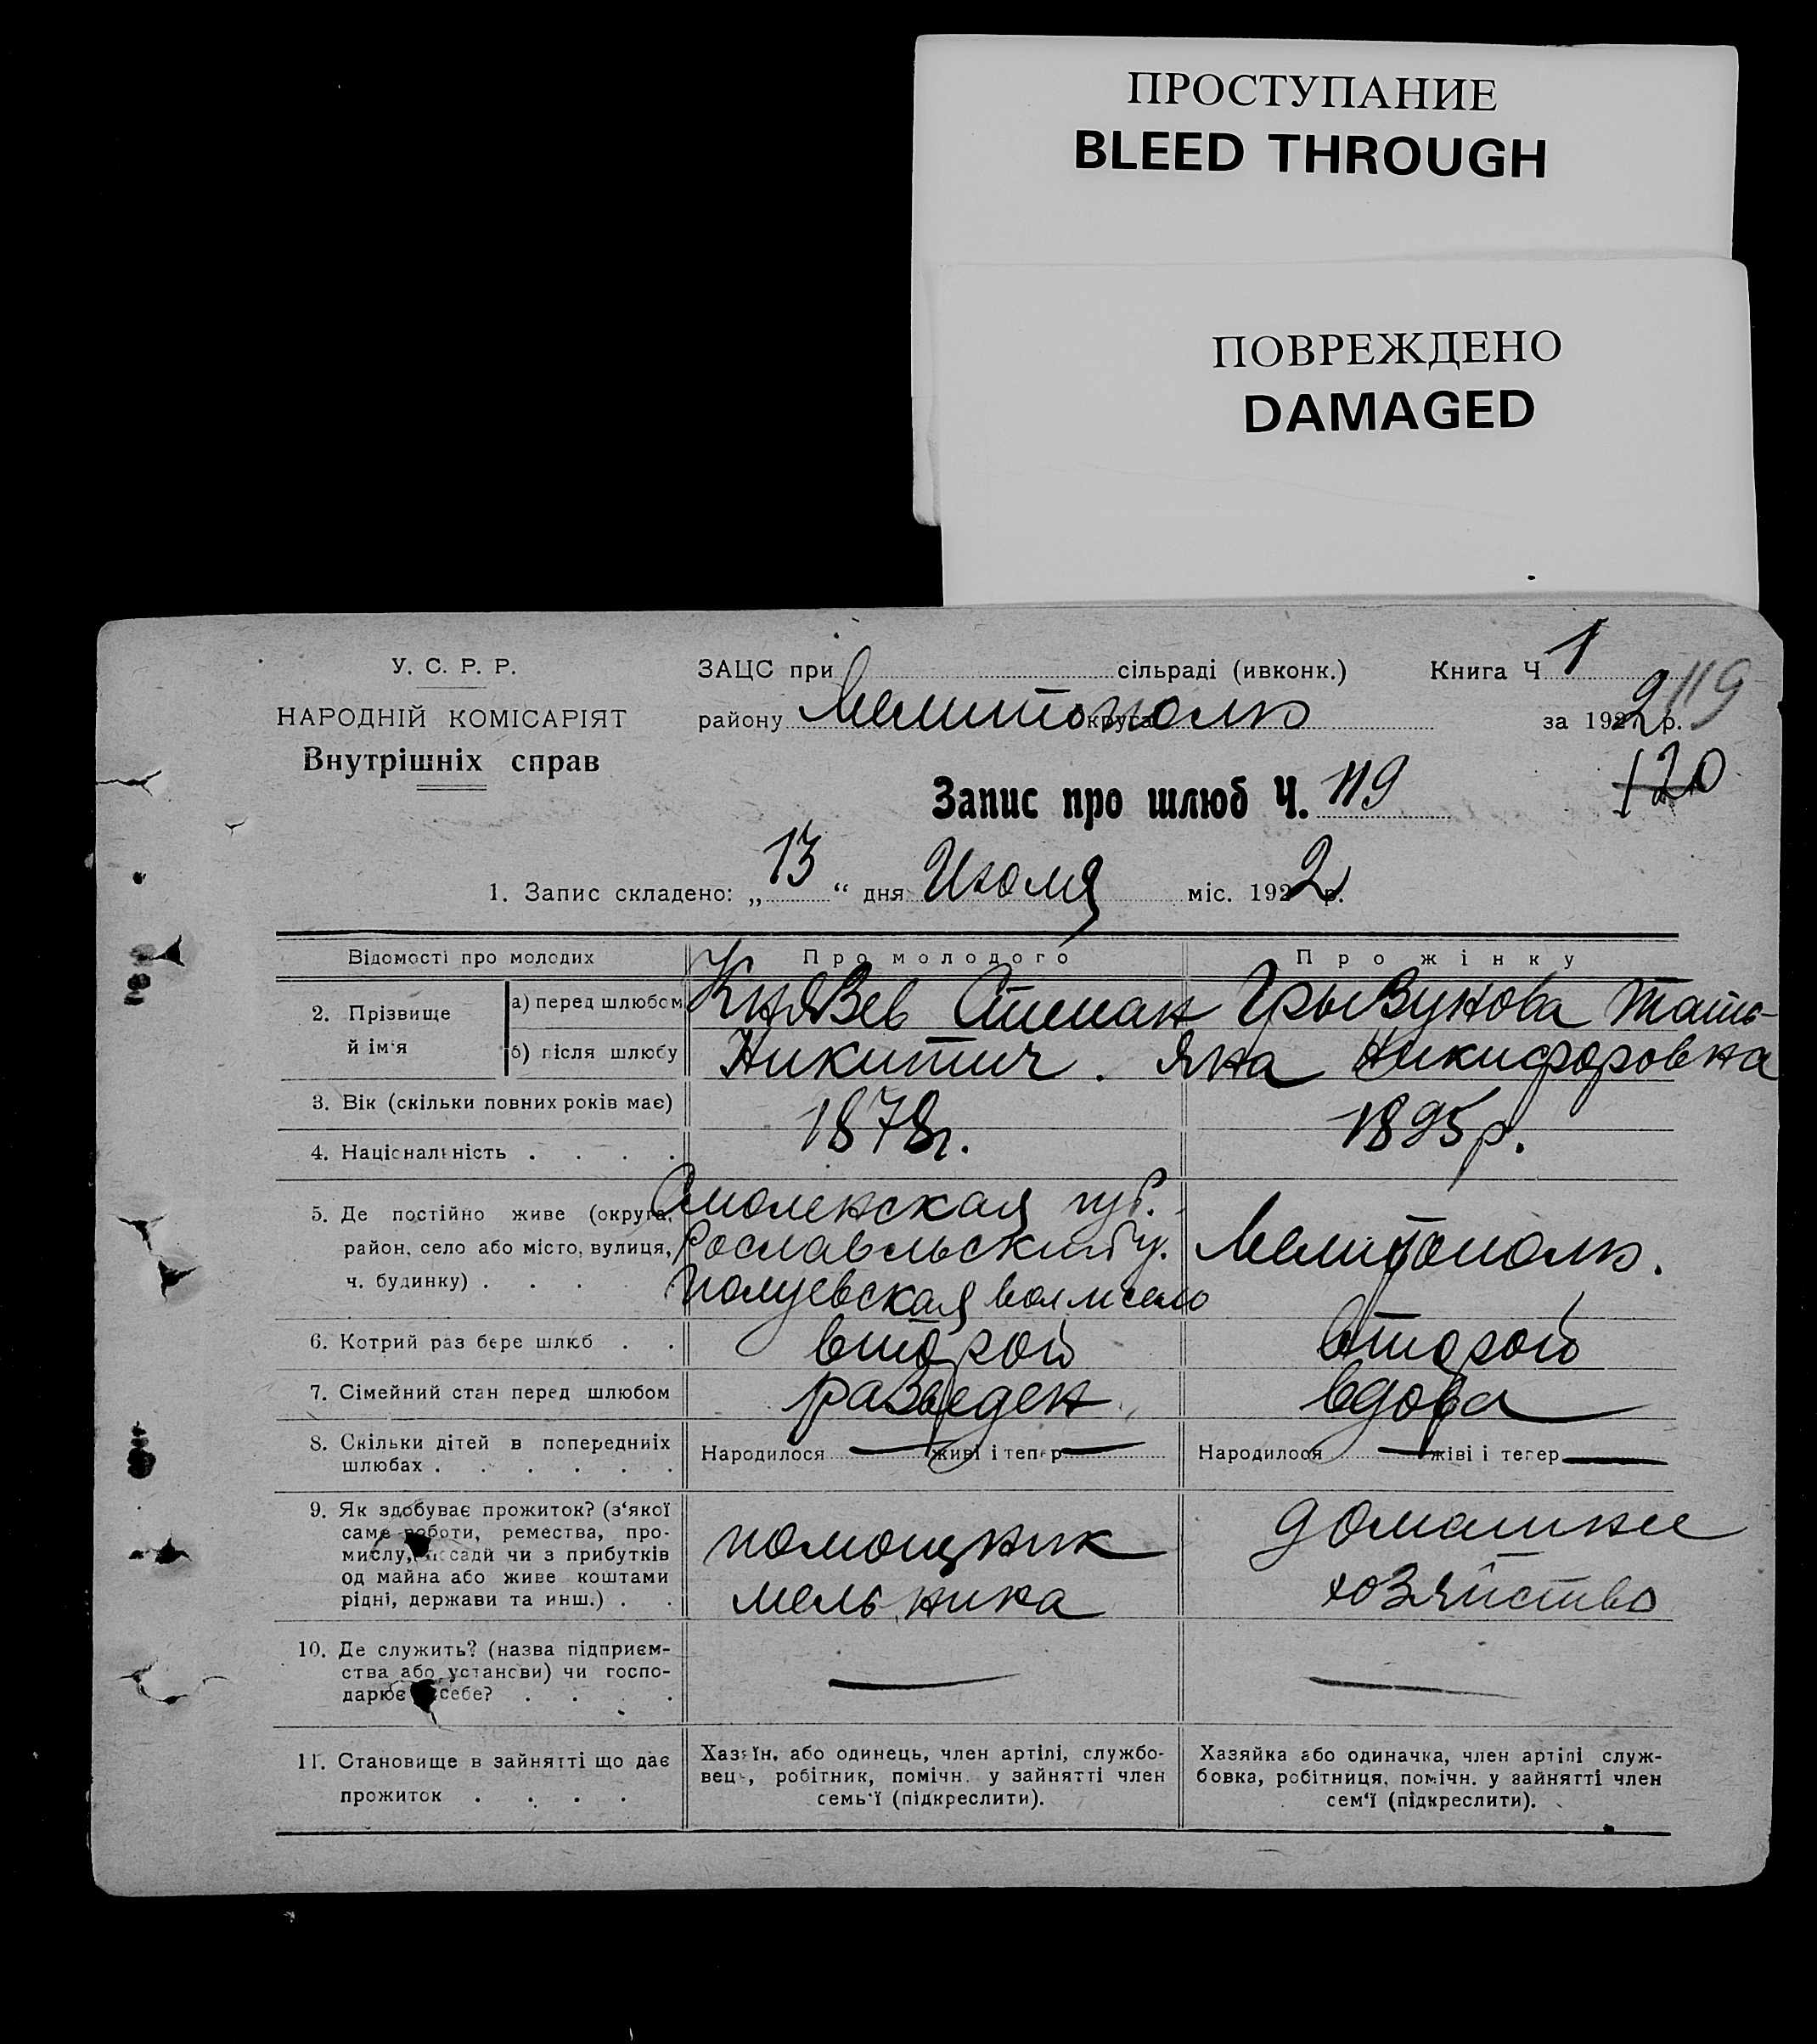 ПРОСТУПАНИЕ
BLEED THROUGH
ПОВРЕЖДЕНО
DAMAGED
У. С. Р. Р.
НАРОДНІЙ КОМІСАРІЯТ
Внутрішніх справ
ЗАЦС при сільраді (ивконк.) Книга Ч 1
району Мелитополь округа за 1922 р. 119
Запис про шлюб Ч. 119 120
1. Запис складено: „ 13 “ дня Июля міс. 1922 р.
Відомості про молодих Про молодого Про жінку
2. Прізвище й ім'я а) перед шлюбом Князев Степан Грызунова Тать-
б) після шлюбу Никитич. яна Никифоровна
3. Вік (скільки повних років має) 1878г. 1895р.
4. Національність . . . .
5. Де постійно живе (округа, Смоленская губ.
район, село або місто, вулиця, Рославльский у. Мелитополь.
ч. будинку) . . . село
6. Котрий раз бере шлюб . . второй второй
7. Сімейний стан перед шлюбом разведен вдова
8. Скільки дітей в попередниіх Народилося — живі і тепер — Народилося — жіві і тепер —
шлюбах . . . . . .
9. Як здобуває прожиток? (з‘якої
саме роботи, ремества, про-
мислу, посади чи з прибутків
од майна або живе коштами
рідні, держави та инш.) . .
помощник домашнее
мельника хозяйство
10. Де служить? (назва підприєм-
ства або установи) чи госпо-
дарює себе? . . . .
— —
11. Становище в зайнятті що дає
прожиток . . . .
Хазяїн, або одинець, член артілі, службо-
вець, робітник, помічн. у зайнятті член
семь‘ї (підкреслити).
Хазяйка або одиначка, член артілі служ-
бовка, робітниця, помічн. у зайнятті член
сем‘ї (підкреслити).